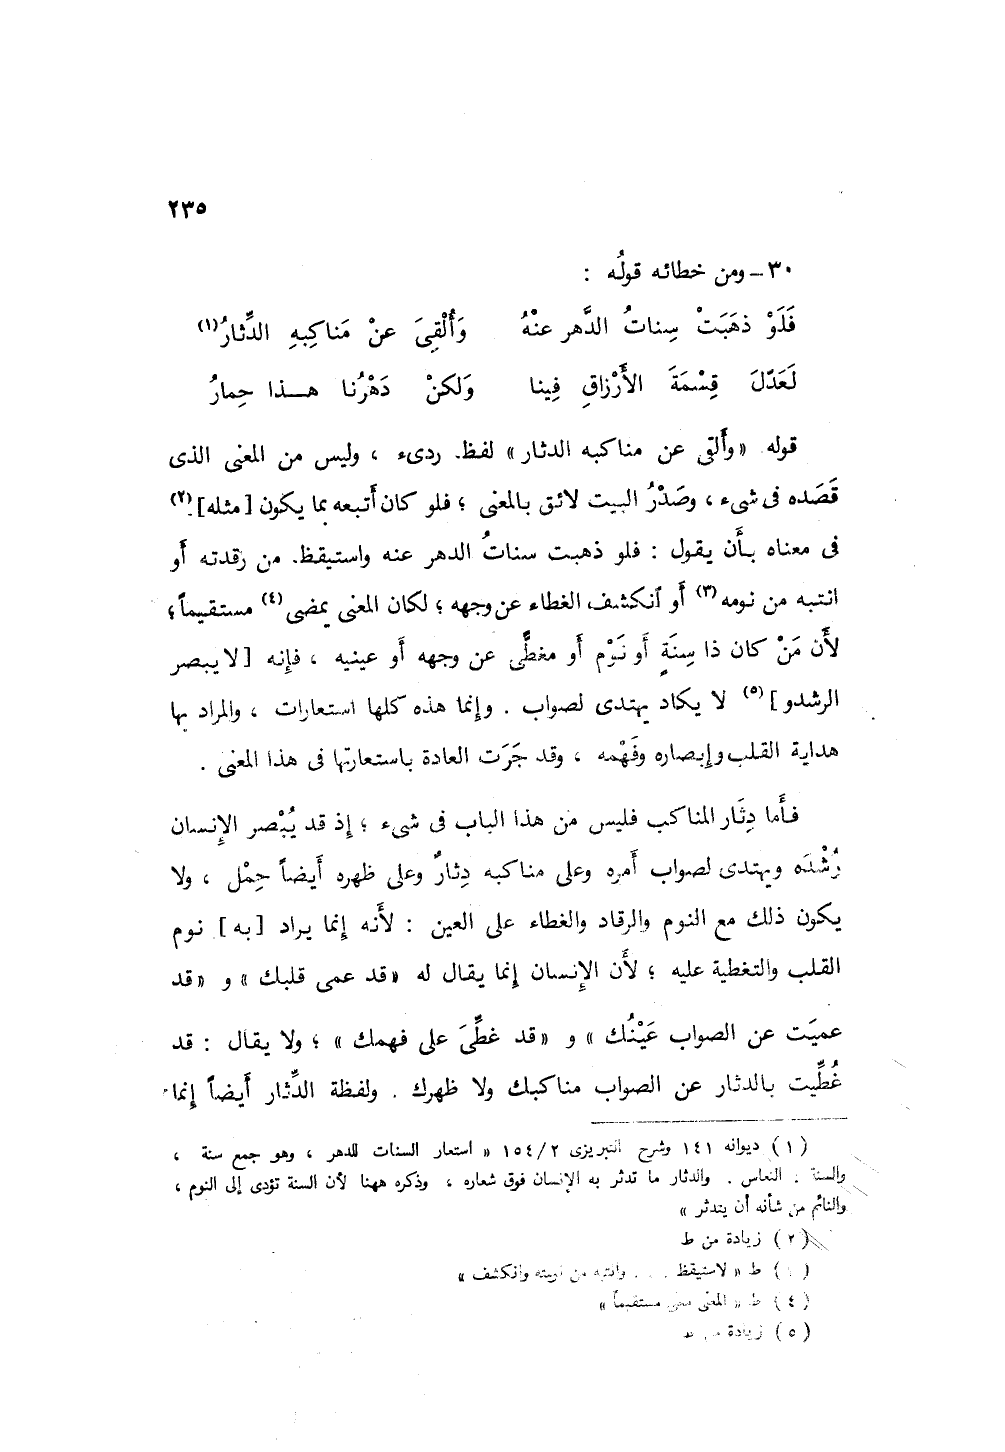 ٢٣٥
٣٠ - ومن خطائه قولُه :
فَلَوْ ذهَبَتْ سِناتُ الدَّهر عنْهُ وَأُلْقِىَ عنْ مَناكِبهِ الدِّثارُ(١)
لَعَدّلَ قِسْمَةَ الأَرْزاقِ فِينا وَلكنْ دَهْرُنا هـذا حِمارُ
قوله «وأَلقى عن مناكبه الدثار» لفظ. ردىء ، وليس من المعنى الذى
قَصَده فى شىء ، وصَدْرُ البيت لائق بالمعنى ؛ فلو كان أَتبعه بما يكون [مثله](٢)
فى معناه بأَن يقول : فلو ذهبت سناتُ الدهر عنه واستيقظ. من رَقدته أَو
انتبه من نومه(٣) أَو انكشف الغطاء عن وجهه ؛ لكان المعنى يمضى(٤) مستقيماً ؛
لأَن مَنْ كان ذا سِنَةٍ أَو نَوْم أَو مغطًّى عن وجهه أَو عينيه ، فإنه [لا يبصر
الرشدو](٥) لا يكاد يهتدى لصواب . وإنما هذه كلها استعارات ، والمراد بها
هداية القلب وإبصاره وفَهْمه ، وقد جَرَت العادة باستعارتها فى هذا المعنى .
فأَما دِثَار المناكب فليس من هذا الباب فى شىء ؛ إذ قد يُبْصر الإنسان
رُشْدَه ويهتدى لصواب أَمره وعلى مناكبه دِثارٌ وعلى ظهره أَيضاً حِمْل ، ولا
يكون ذلك مع النوم والرقاد والغطاء على العين : لأَنه إنما يراد [به] نوم
القلب والتغطية عليه ؛ لأَن الإنسان إنما يقال له «قد عمى قلبك» و «قد
عميَت عن الصواب عَيْنُك» و «قد غطِّىَ على فهمك» ؛ ولا يقال : قد
غُطِّيت بالدثار عن الصواب مناكبك ولا ظهرك . ولفظة الدِّثار أَيضاً إنما
(١) ديوانه ١٤١ وشرح التبريزى ٢/١٥٤ « استعار السنات للدهر ، وهو جمع سنة ،
والسنة : النعاس . والدثار ما تدثر به الإنسان فوق شعاره ، وذكره ههنا لأن السنة تؤدى إلى النوم ،
والنائم من شأنه أن يتدثر »
(٢) زيادة من ط
( ) ط « لاستيقظ . . . وانتبه من نومته وانكشف »
(٤) ط « المعنى مستقيماً »
(٥) زيادة من ط